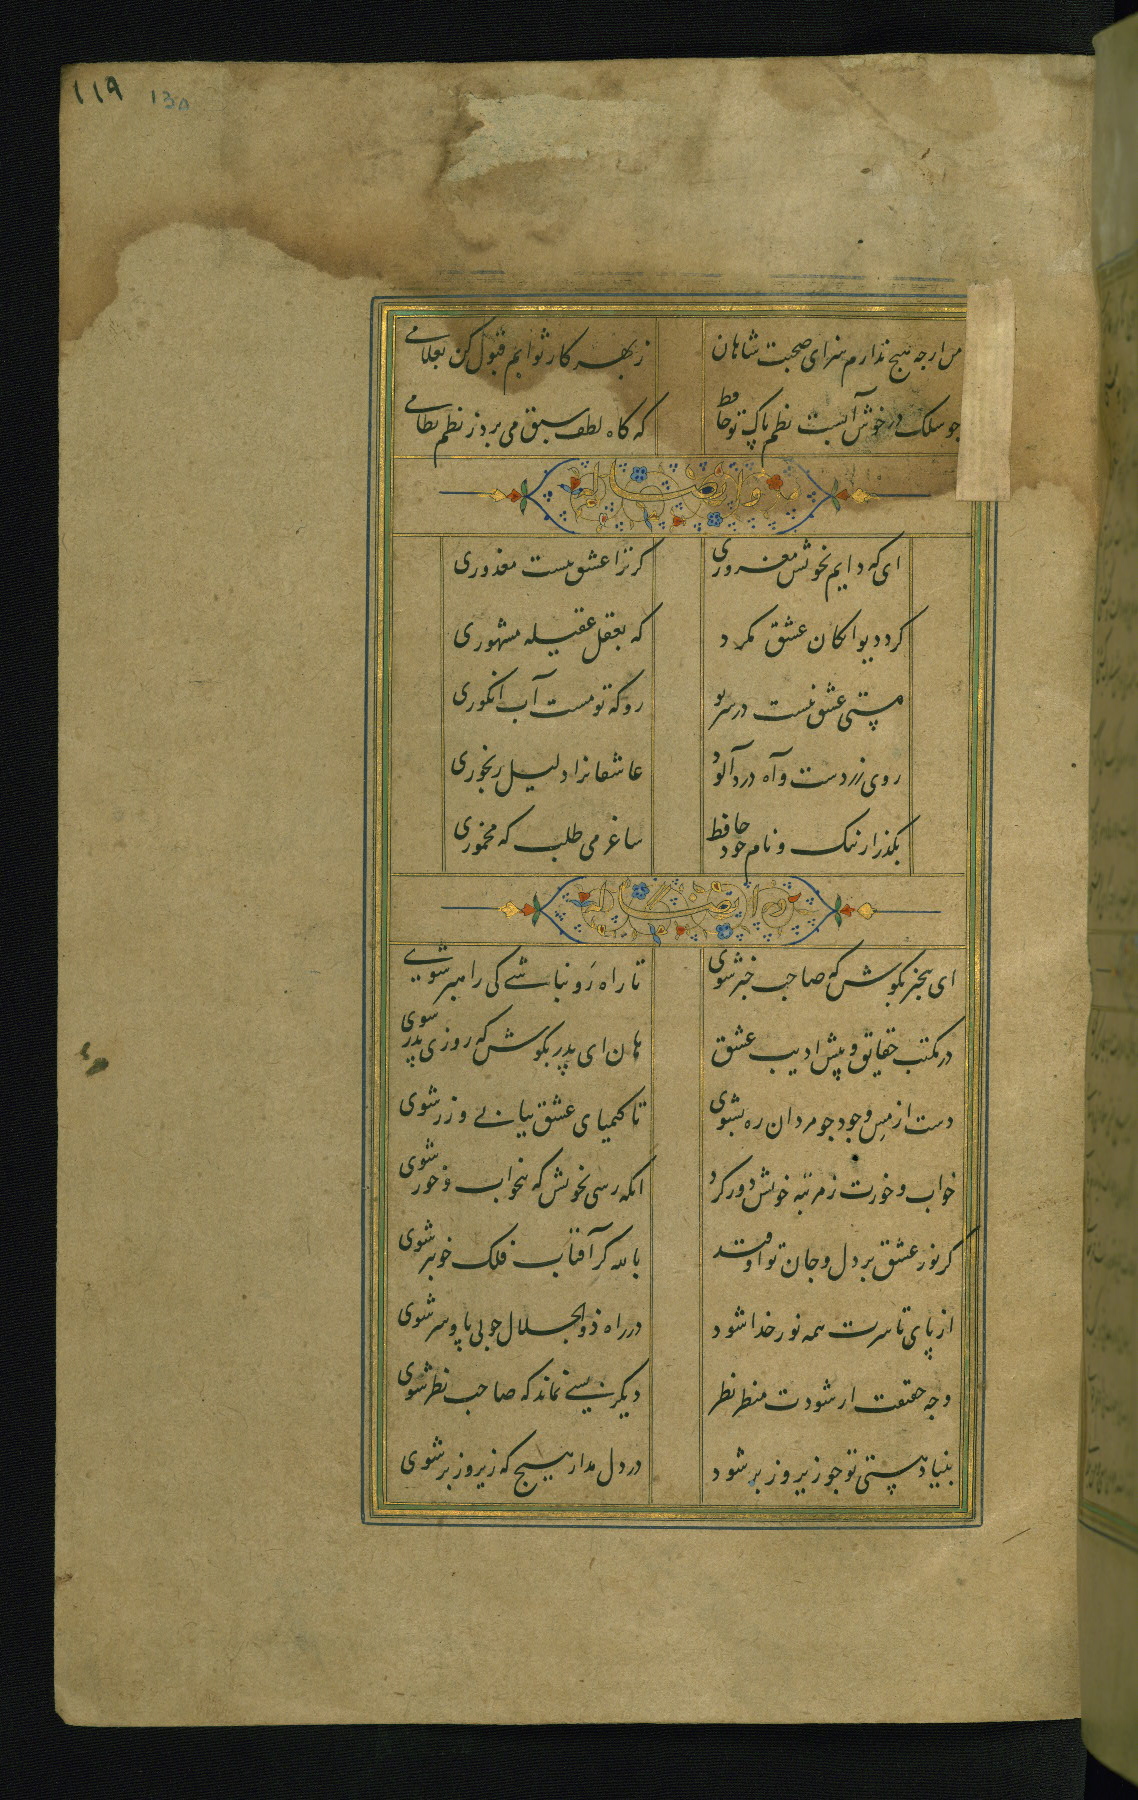 ۱۱۹ 135
من ارجه هیچ ندارم سزای صحبت شاهان زبهر کار ثوابم قبول کن بغلامی
جو سلک در خوش آبست نظم پاک تو حافظ که کاه لطف سبق می برد ز نظم نظامی
وایضا له
ای که دایم بخویش مغروری کر ترا عشق نیست معذوری
کرد دیوانکان عشق مکرد که بعقل عقیله مشهوری
مستی عشق نیست در سر تو رو که تو مست آب انکوری
روی زردست و آه دردآلود عاشقانرا دلیل رنجوری
بکذر از ننک و نام خود حافظ ساغر می طلب که مخموری
وله ایضا له
ای بیخبر بکوش که صاحب خبر شوی تا راه رو نباشی کی راهبر شوی
در مکتب حقایق و پیش ادیب عشق هان ای پدر بکوش که روزی پدر شوی
دست از مس وجود جو مردان ره بشوی تا کیمیای عشق بیابی و زر شوی
خواب و خورت ز مرتبه خویش دور کرد انکه رسی بخویش که بیخواب و خور شوی
کر نور عشق بر دل و جان تو اوفتد بالله کز آفتاب فلک خوبتر شوی
از پای تا سرت همه نور خدا شود در راه ذو الجلال جو بی پا و سر شوی
وجه حقیقت ار شودت منظر نظر دیکر نسی نماند که صاحب نظر شوی
بنیاد هستی تو جو زیر و زبر شود در دل مدار هیچ که زیر و زبر شوی